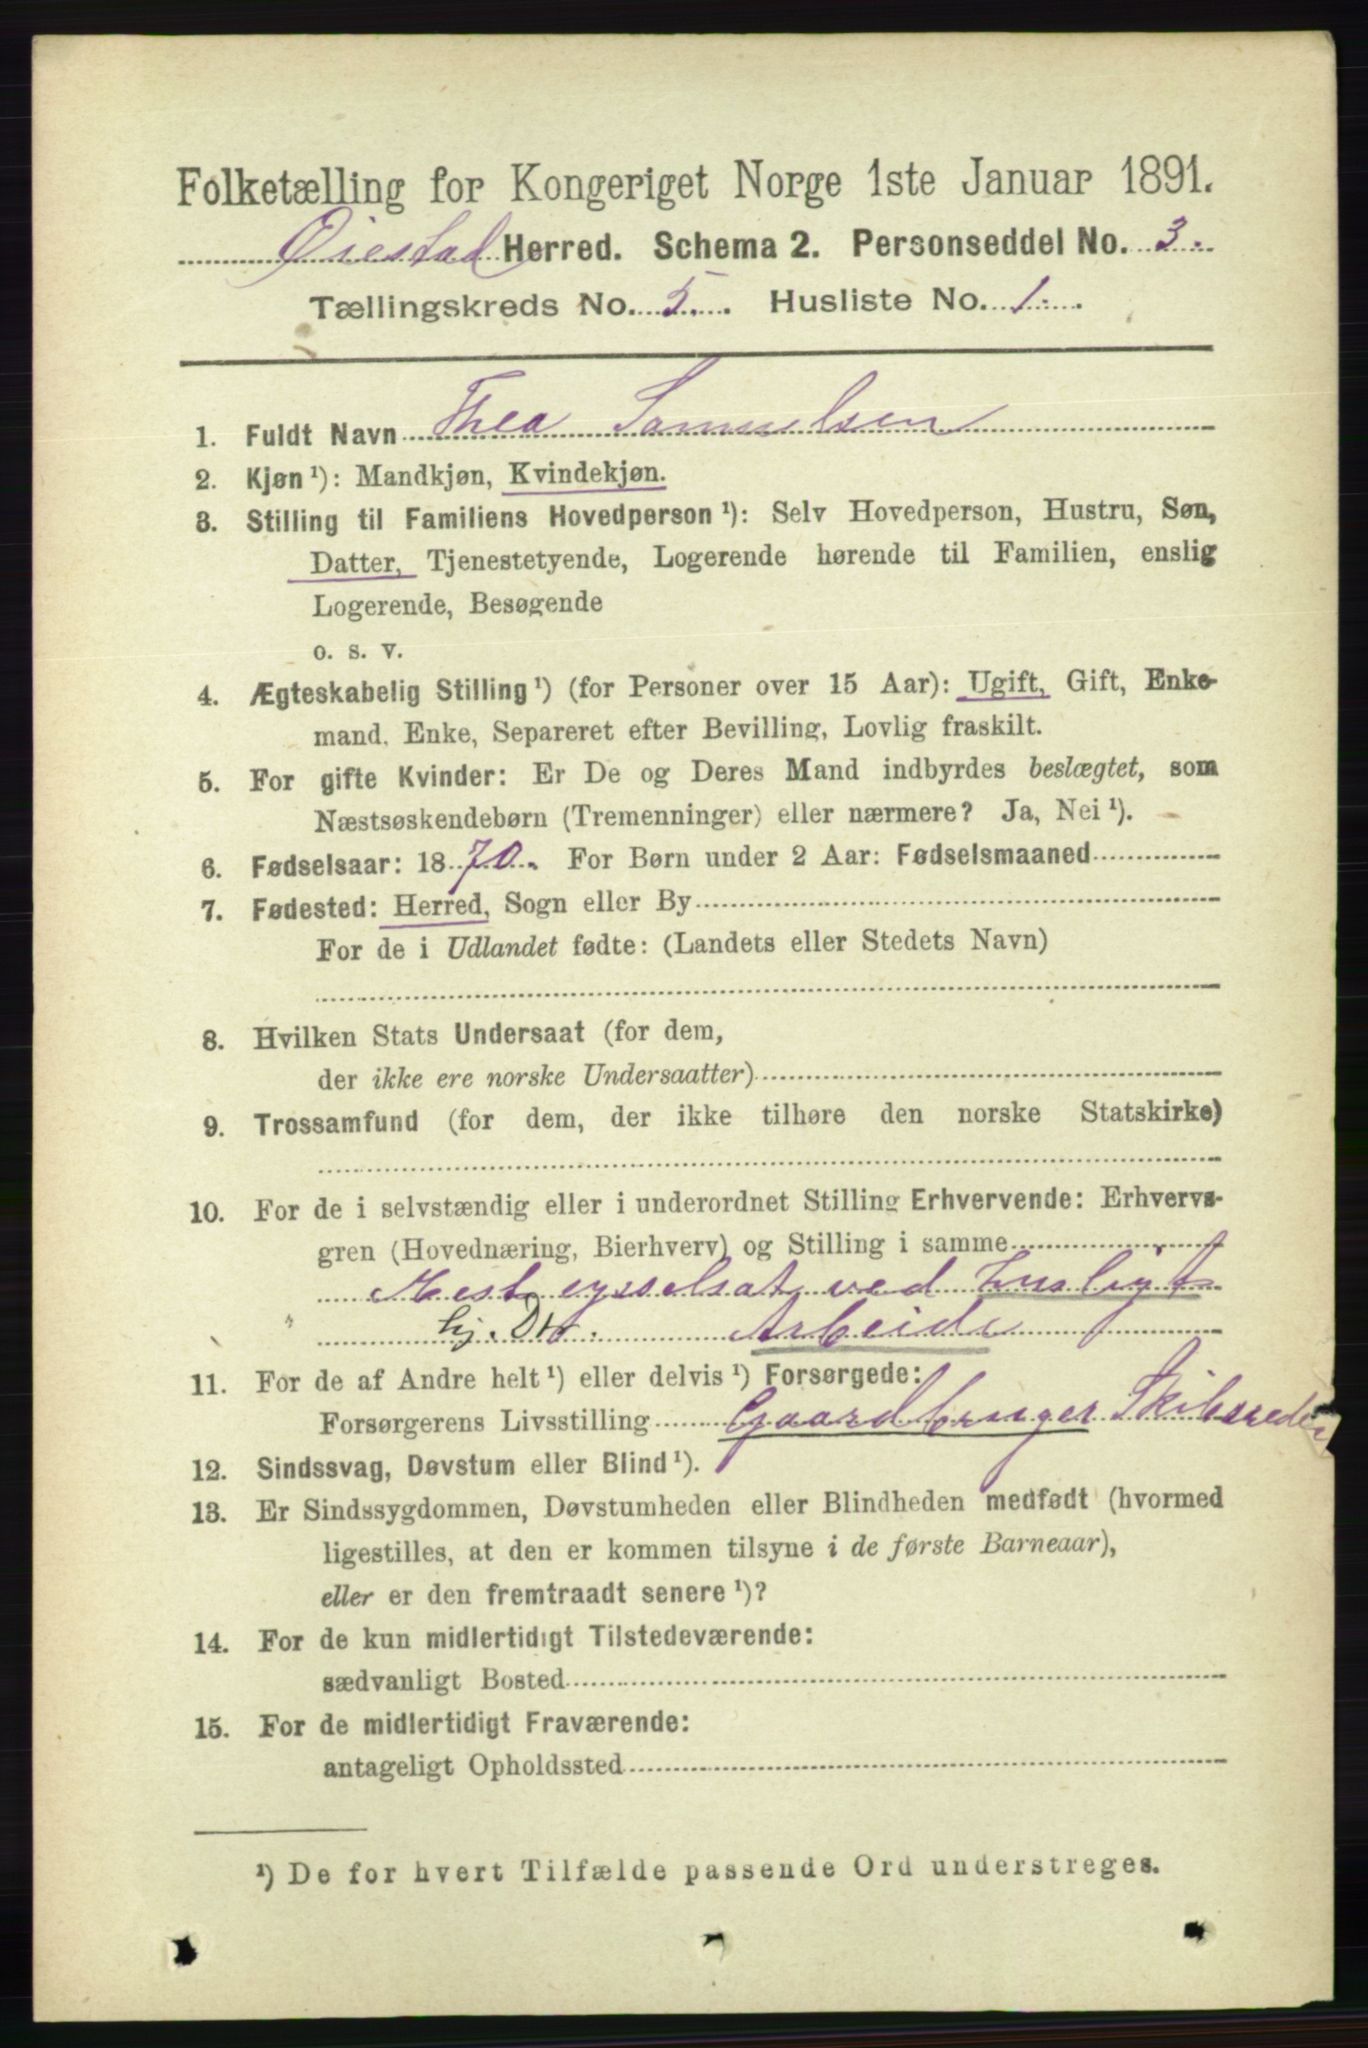 Folketælling for Kongeriget Norge 1ste Januar 1891.
Øiestad Herred. Schema 2. Personseddel No. 3.
Tællingskreds No. 5. Husliste No. 1.
1. Fuldt Navn Thea Samuelsen
2. Kjøn ¹): Mandkjøn, Kvindekjøn.
3. Stilling til Familiens Hovedperson ¹): Selv Hovedperson, Hustru, Søn,
Datter, Tjenestetyende, Logerende hørende til Familien, enslig
Logerende, Besøgende
o. s. v.
4. Ægteskabelig Stilling ¹) (for Personer over 15 Aar): Ugift, Gift, Enke-
mand, Enke, Separeret efter Bevilling, Lovlig fraskilt.
5. For gifte Kvinder: Er De og Deres Mand indbyrdes beslægtet, som
Næstsøskendebørn (Tremenninger) eller nærmere? Ja, Nei ¹).
6. Fødselsaar: 1870. For Børn under 2 Aar: Fødselsmaaned
7. Fødested: Herred, Sogn eller By
For de i Udlandet fødte: (Landets eller Stedets Navn)
8. Hvilken Stats Undersaat (for dem,
der ikke ere norske Undersaatter)
9. Trossamfund (for dem, der ikke tilhøre den norske Statskirke)
10. For de i selvstændig eller i underordnet Stilling Erhvervende: Erhvervs-
gren (Hovednæring, Bierhverv) og Stilling i samme
Mest sysselsat ved husligt
hj. Dtr. Arbeide
11. For de af Andre helt ¹) eller delvis ¹) Forsørgede:
Forsørgerens Livsstilling Gaardbruger Skibsreder
12. Sindssvag, Døvstum eller Blind ¹).
13. Er Sindssygdommen, Døvstumheden eller Blindheden medfødt (hvormed
ligestilles, at den er kommen tilsyne i de første Barneaar),
eller er den fremtraadt senere ¹)?
14. For de kun midlertidigt Tilstedeværende:
sædvanligt Bosted
15. For de midlertidigt Fraværende:
antageligt Opholdssted
¹) De for hvert Tilfælde passende Ord understreges.